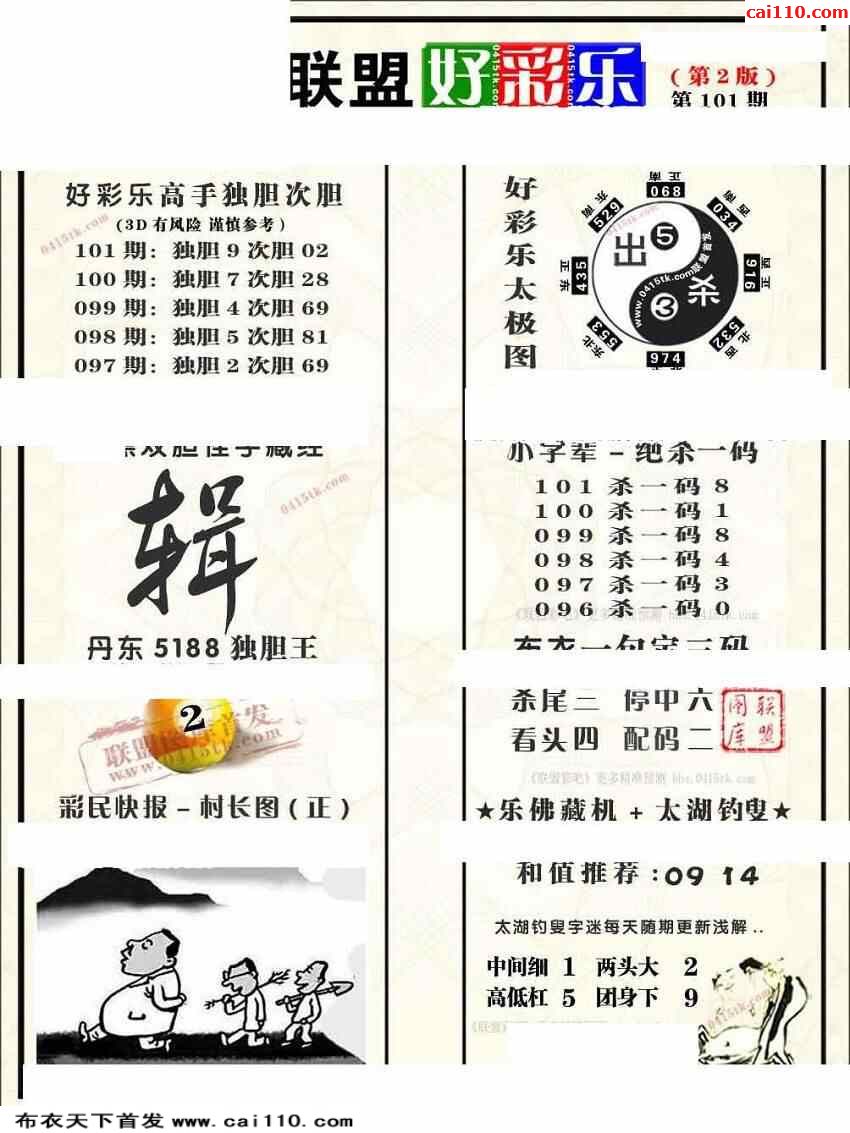 cai110.com
联盟 好彩乐
(第2版)
第101期
好彩乐高手独胆次胆
(3D有风险 谨慎参考)
101期：独胆9次胆02
100期：独胆7次胆28
099期：独胆4次胆69
098期：独胆5次胆81
097期：独胆2次胆69
0415tk.com
双胆怪字藏经
辑
0415tk.com
丹东5188独胆王
2
www.0415tk.com
彩民快报－村长图(正)
好彩乐太极图
正南 068
西南 034
正西 916
西北 532
974
东北 553
正东 435
东南 529
出 5
杀 3
www.0415tk.com联盟首发
小字辈－绝杀一码
101 杀一码 8
100 杀一码 1
099 杀一码 8
098 杀一码 4
097 杀一码 3
096 杀一码 0
布衣一句定三码
杀尾三 停甲六
看头四 配码二
联盟图库
《联盟彩吧》更多精准预测 bbs.0415tk.com
★乐佛藏机 + 太湖钓叟★
和值推荐:09 14
太湖钓叟字迷每天随期更新浅解..
中间细 1 两头大 2
高低杠 5 团身下 9
0415tk.com
布衣天下首发 www.cai110.com